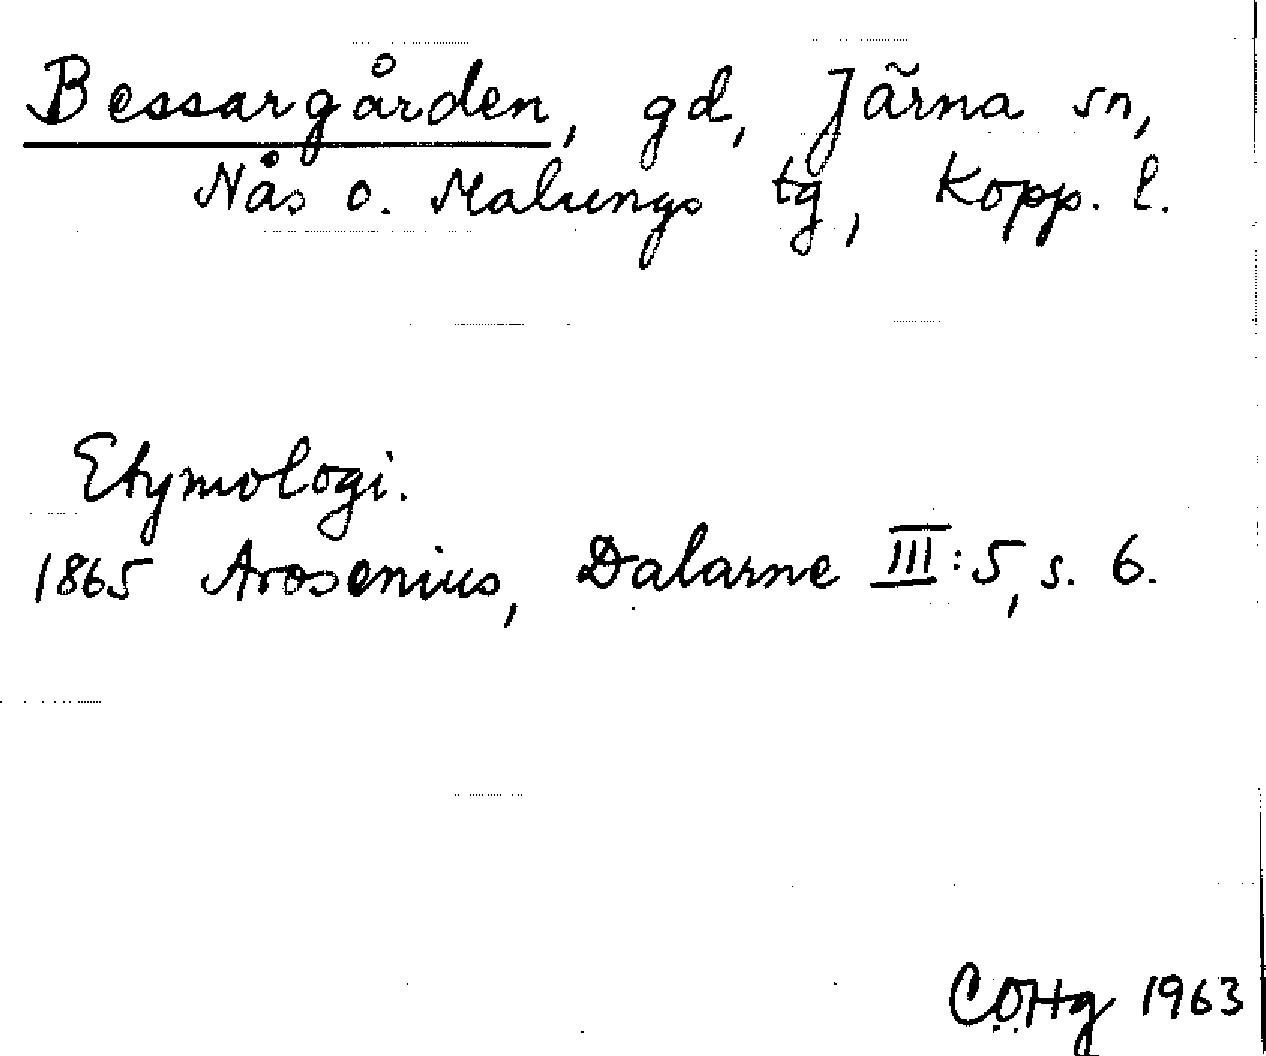 Bessargården, gd, Järna sn,
Nås o. Malungs tg, Kopp. l.
Etymologi.
1865 Arosenius, Dalarne III:5, s. 6.
COHg 1963